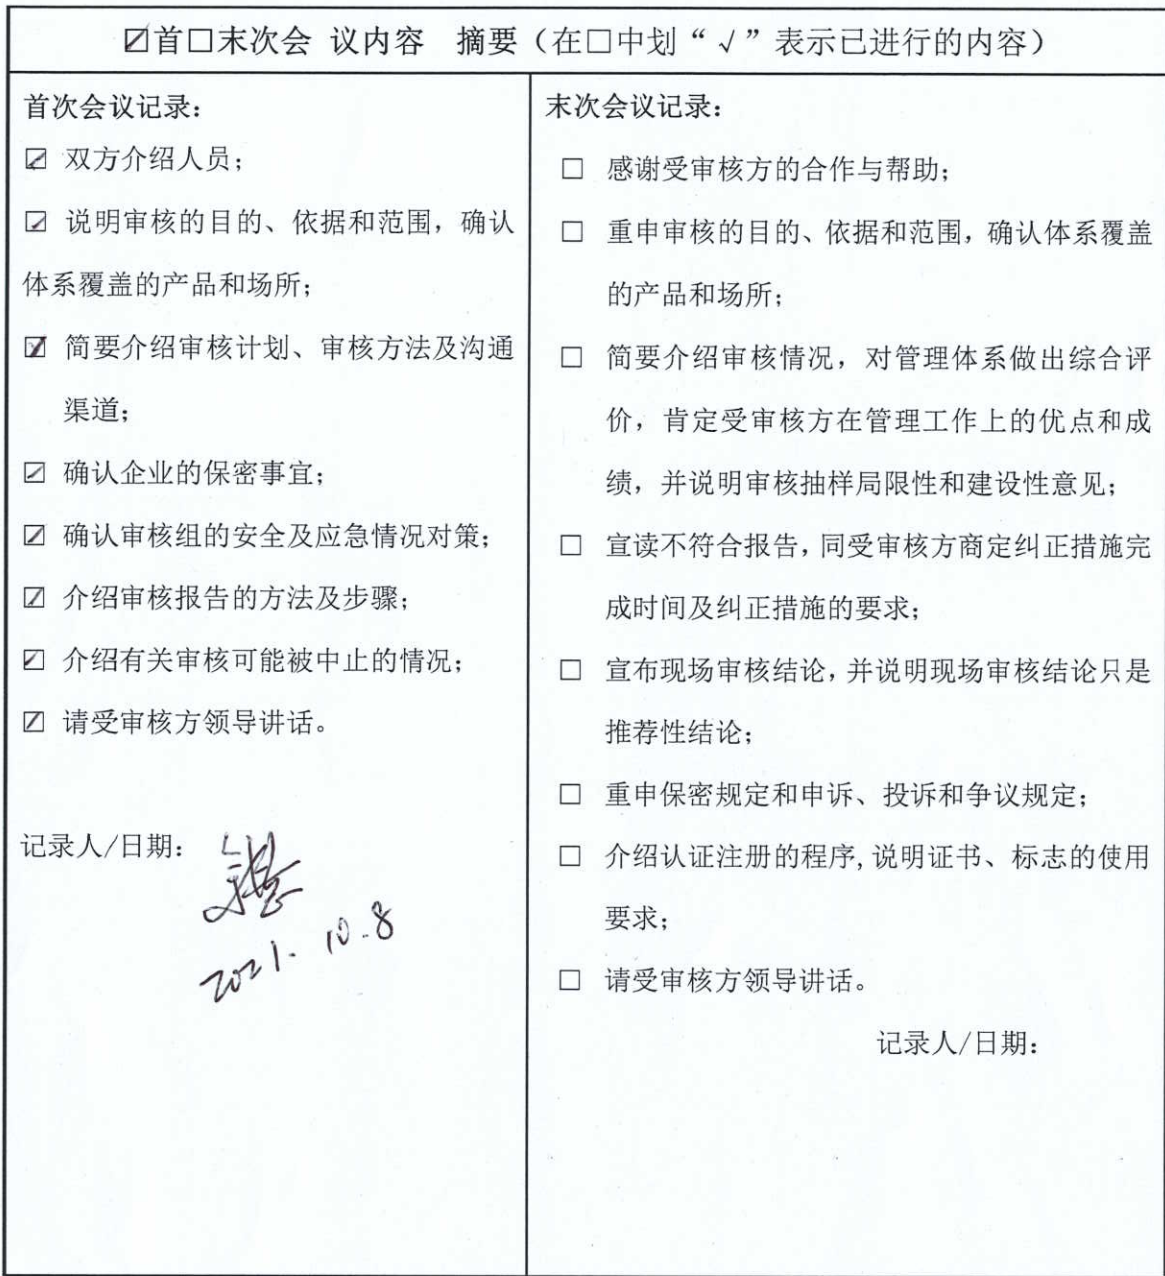 ☑首□末次会 议内容 摘要（在□中划“√”表示已进行的内容）
首次会议记录：
☑ 双方介绍人员；
☑ 说明审核的目的、依据和范围，确认
体系覆盖的产品和场所；
☑ 简要介绍审核计划、审核方法及沟通
渠道；
☑ 确认企业的保密事宜；
☑ 确认审核组的安全及应急情况对策；
☑ 介绍审核报告的方法及步骤；
☑ 介绍有关审核可能被中止的情况；
☑ 请受审核方领导讲话。
记录人/日期：
2021.10.8
末次会议记录：
□ 感谢受审核方的合作与帮助；
□ 重申审核的目的、依据和范围，确认体系覆盖
的产品和场所；
□ 简要介绍审核情况，对管理体系做出综合评
价，肯定受审核方在管理工作上的优点和成
绩，并说明审核抽样局限性和建设性意见；
□ 宣读不符合报告，同受审核方商定纠正措施完
成时间及纠正措施的要求；
□ 宣布现场审核结论，并说明现场审核结论只是
推荐性结论；
□ 重申保密规定和申诉、投诉和争议规定；
□ 介绍认证注册的程序,说明证书、标志的使用
要求；
□ 请受审核方领导讲话。
记录人/日期：